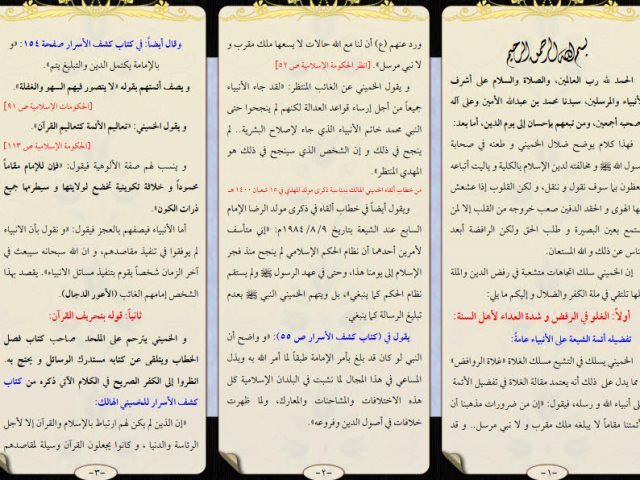 بسم الله الرحمن الرحيم
الحمد لله رب العالمين، والصلاة والسلام على أشرف
الأنبياء والمرسلين، سيدنا محمد بن عبدالله الأمين وعلى آله
وصحبه أجمعين، ومن تبعهم بإحسان إلى يوم الدين، أما بعد:
فهذا كلام يوضح ضلال الخميني و طعنه في صحابة
رسول الله ﷺ و مخالفته لدين الإسلام بالكلية و ياليت أتباعه
يتعظون بما سوف نقول و ننقل، و لكن القلوب إذا عشعش
فيها الهوى و الحقد الدفين صعب خروجه من القلب إلا لمن
استمع بعين البصيرة و طلب الحق ولكن الرافضة أبعد
الناس عن ذلك و الله المستعان.
إن الخميني سلك اتجاهات متشعبة في رفض الدين والملة
كلها تلتقي في ملة الكفر والضلال و إليكم ما يلي:
أولاً: الغلو في الرفض و شدة العداء لأهل السنة:
تفضيله أئمة الشيعة على الأنبياء عامة:
الخميني يسلك في التشيع مسلك الغلاة «غلاة الروافض»
مما يدل على ذلك أنه يعتمد مقالة الغلاة في تفضيل الأئمة
على أنبياء الله و رسله، فيقول: «إن من ضرورات مذهبنا أن
لأئمتنا مقاماً لا يبلغه ملك مقرب و لا نبي مرسل.. و قد
-١-
ورد عنهم (ع) أن لنا مع الله حالات لا يسعها ملك مقرب و
لا نبي مرسل». [انظر الحكومة الإسلامية ص ٥٢]
و يقول الخميني عن الغائب المنتظر: «لقد جاء الأنبياء
جميعاً من أجل إرساء قواعد العدالة لكنهم لم ينجحوا حتى
النبي محمد خاتم الأنبياء الذي جاء لإصلاح البشرية.. لم
ينجح في ذلك و إن الشخص الذي سينجح في ذلك هو
المهدي المنتظر»
من خطاب ألقاه الخميني الهالك بمناسبة ذكرى مولد المهدي في ١٥ شعبان ١٤٠٠ هـ
ويقول أيضاً في خطاب ألقاه في ذكرى مولد الرضا الإمام
السابع عند الشيعة بتاريخ ١٩٨٤/٨/٩م: «إني متأسف
لأمرين أحدهما أن نظام الحكم الإسلامي لم ينجح منذ فجر
الإسلام إلى يومنا هذا، وحتى في عهد الرسول ﷺ ولم يستقم
نظام الحكم كما ينبغي»، بل ويتهم الخميني النبي ﷺ بعدم
تبليغ الرسالة كما ينبغي.
يقول في (كتاب كشف الأسرار ص ٥٥): «و واضح أن
النبي لو كان قد بلغ بأمر الإمامة طبقاً لما أمر الله به وبذل
المساعي في هذا المجال لما نشبت في البلدان الإسلامية كل
هذه الاختلافات والمشاحنات والمعارك، ولما ظهرت
خلافات في أصول الدين وفروعه».
-٢-
وقال أيضاً: في كتاب كشف الأسرار صفحة ١٥٤: «و
بالإمامة يكتمل الدين والتبليغ يتم».
و يصف أئمتهم بقوله «لا يتصور فيهم السهو والغفلة».
[الحكومات الإسلامية ص ٩١]
و يقول الخميني: «تعاليم الأئمة كتعاليم القرآن».
[الحكومة الإسلامية ص ١١٣]
و ينسب لهم صفة الألوهية فيقول: «فإن للإمام مقاماً
محموداً و خلافة تكوينية تخضع لولايتها و سيطرتها جميع
ذرات الكون».
أما الأنبياء فيصفهم بالعجز فيقول: «و نقول بأن الأنبياء
لم يوفقوا في تنفيذ مقاصدهم، و ان الله سبحانه سيبعث في
آخر الزمان شخصاً يقوم بتنفيذ مسائل الانبياء». يقصد بهذا
الشخص إمامهم الغائب (الأعور الدجال).
ثانياً: قوله بتحريف القرآن:
و الخميني يترحم على الملحد صاحب كتاب فصل
الخطاب ويتلقى عن كتابه مستدرك الوسائل و يحتج به.
انظروا إلى الكفر الصريح في الكلام الآتي ذكره من كتاب
كشف الأسرار للخميني الهالك:
«إن الذين لم يكن لهم ارتباط بالإسلام والقرآن إلا لأجل
الرئاسة والدنيا ، و كانوا يجعلون القرآن وسيلة لمقاصدهم
-٣-